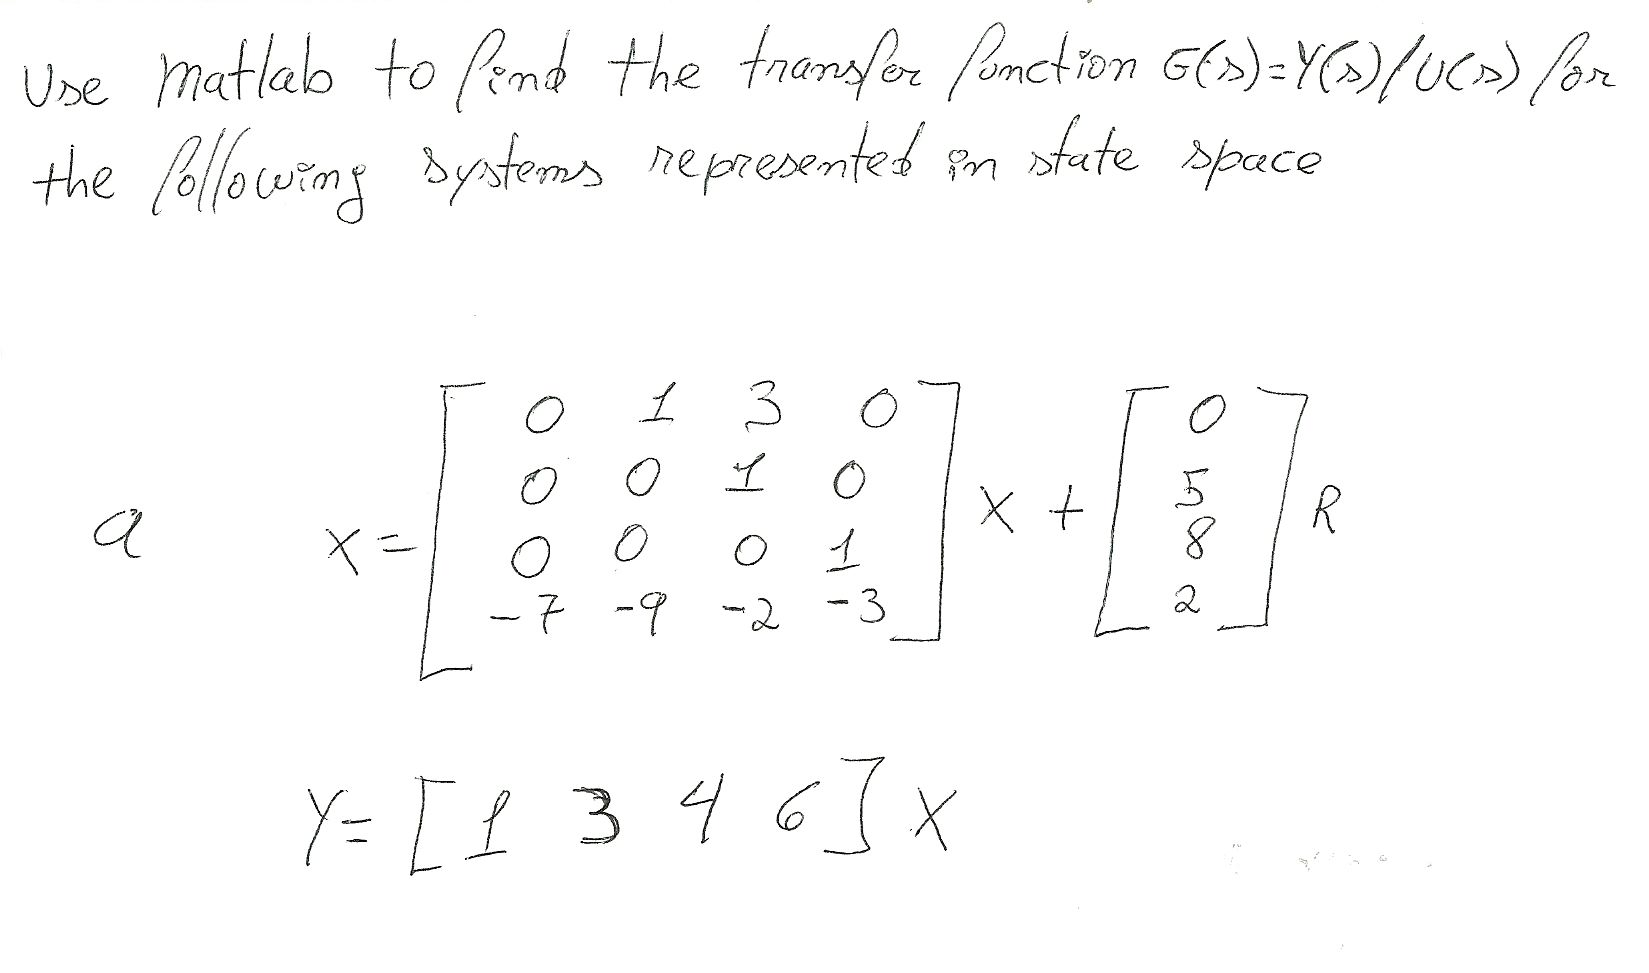 Use matlab to find the transfer function G(s)=Y(s)/U(s) for
the following systems represented in state space
0 1 3 0 0
0 0 1 0 5
a x= x + R
0 0 0 1 8
-7 -9 -2 -3 2
Y= [1 3 4 6] x